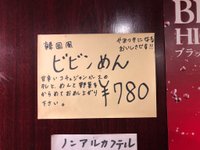 韓国風
やみつきになる
おいしさです!!
ビビンめん
甘辛いコチュジャンベースの
タレと、めんと野菜を
からめてお召し上がり
下さい。
¥780
ノンアルカクテル
BE
HI
ブラッ